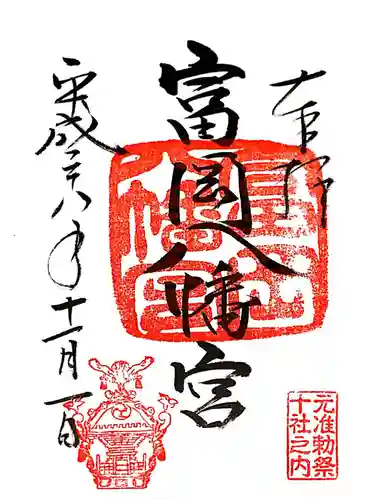 奉拝
富岡八幡宮
平成二十八年十一月一日
元准勅祭
十社之内